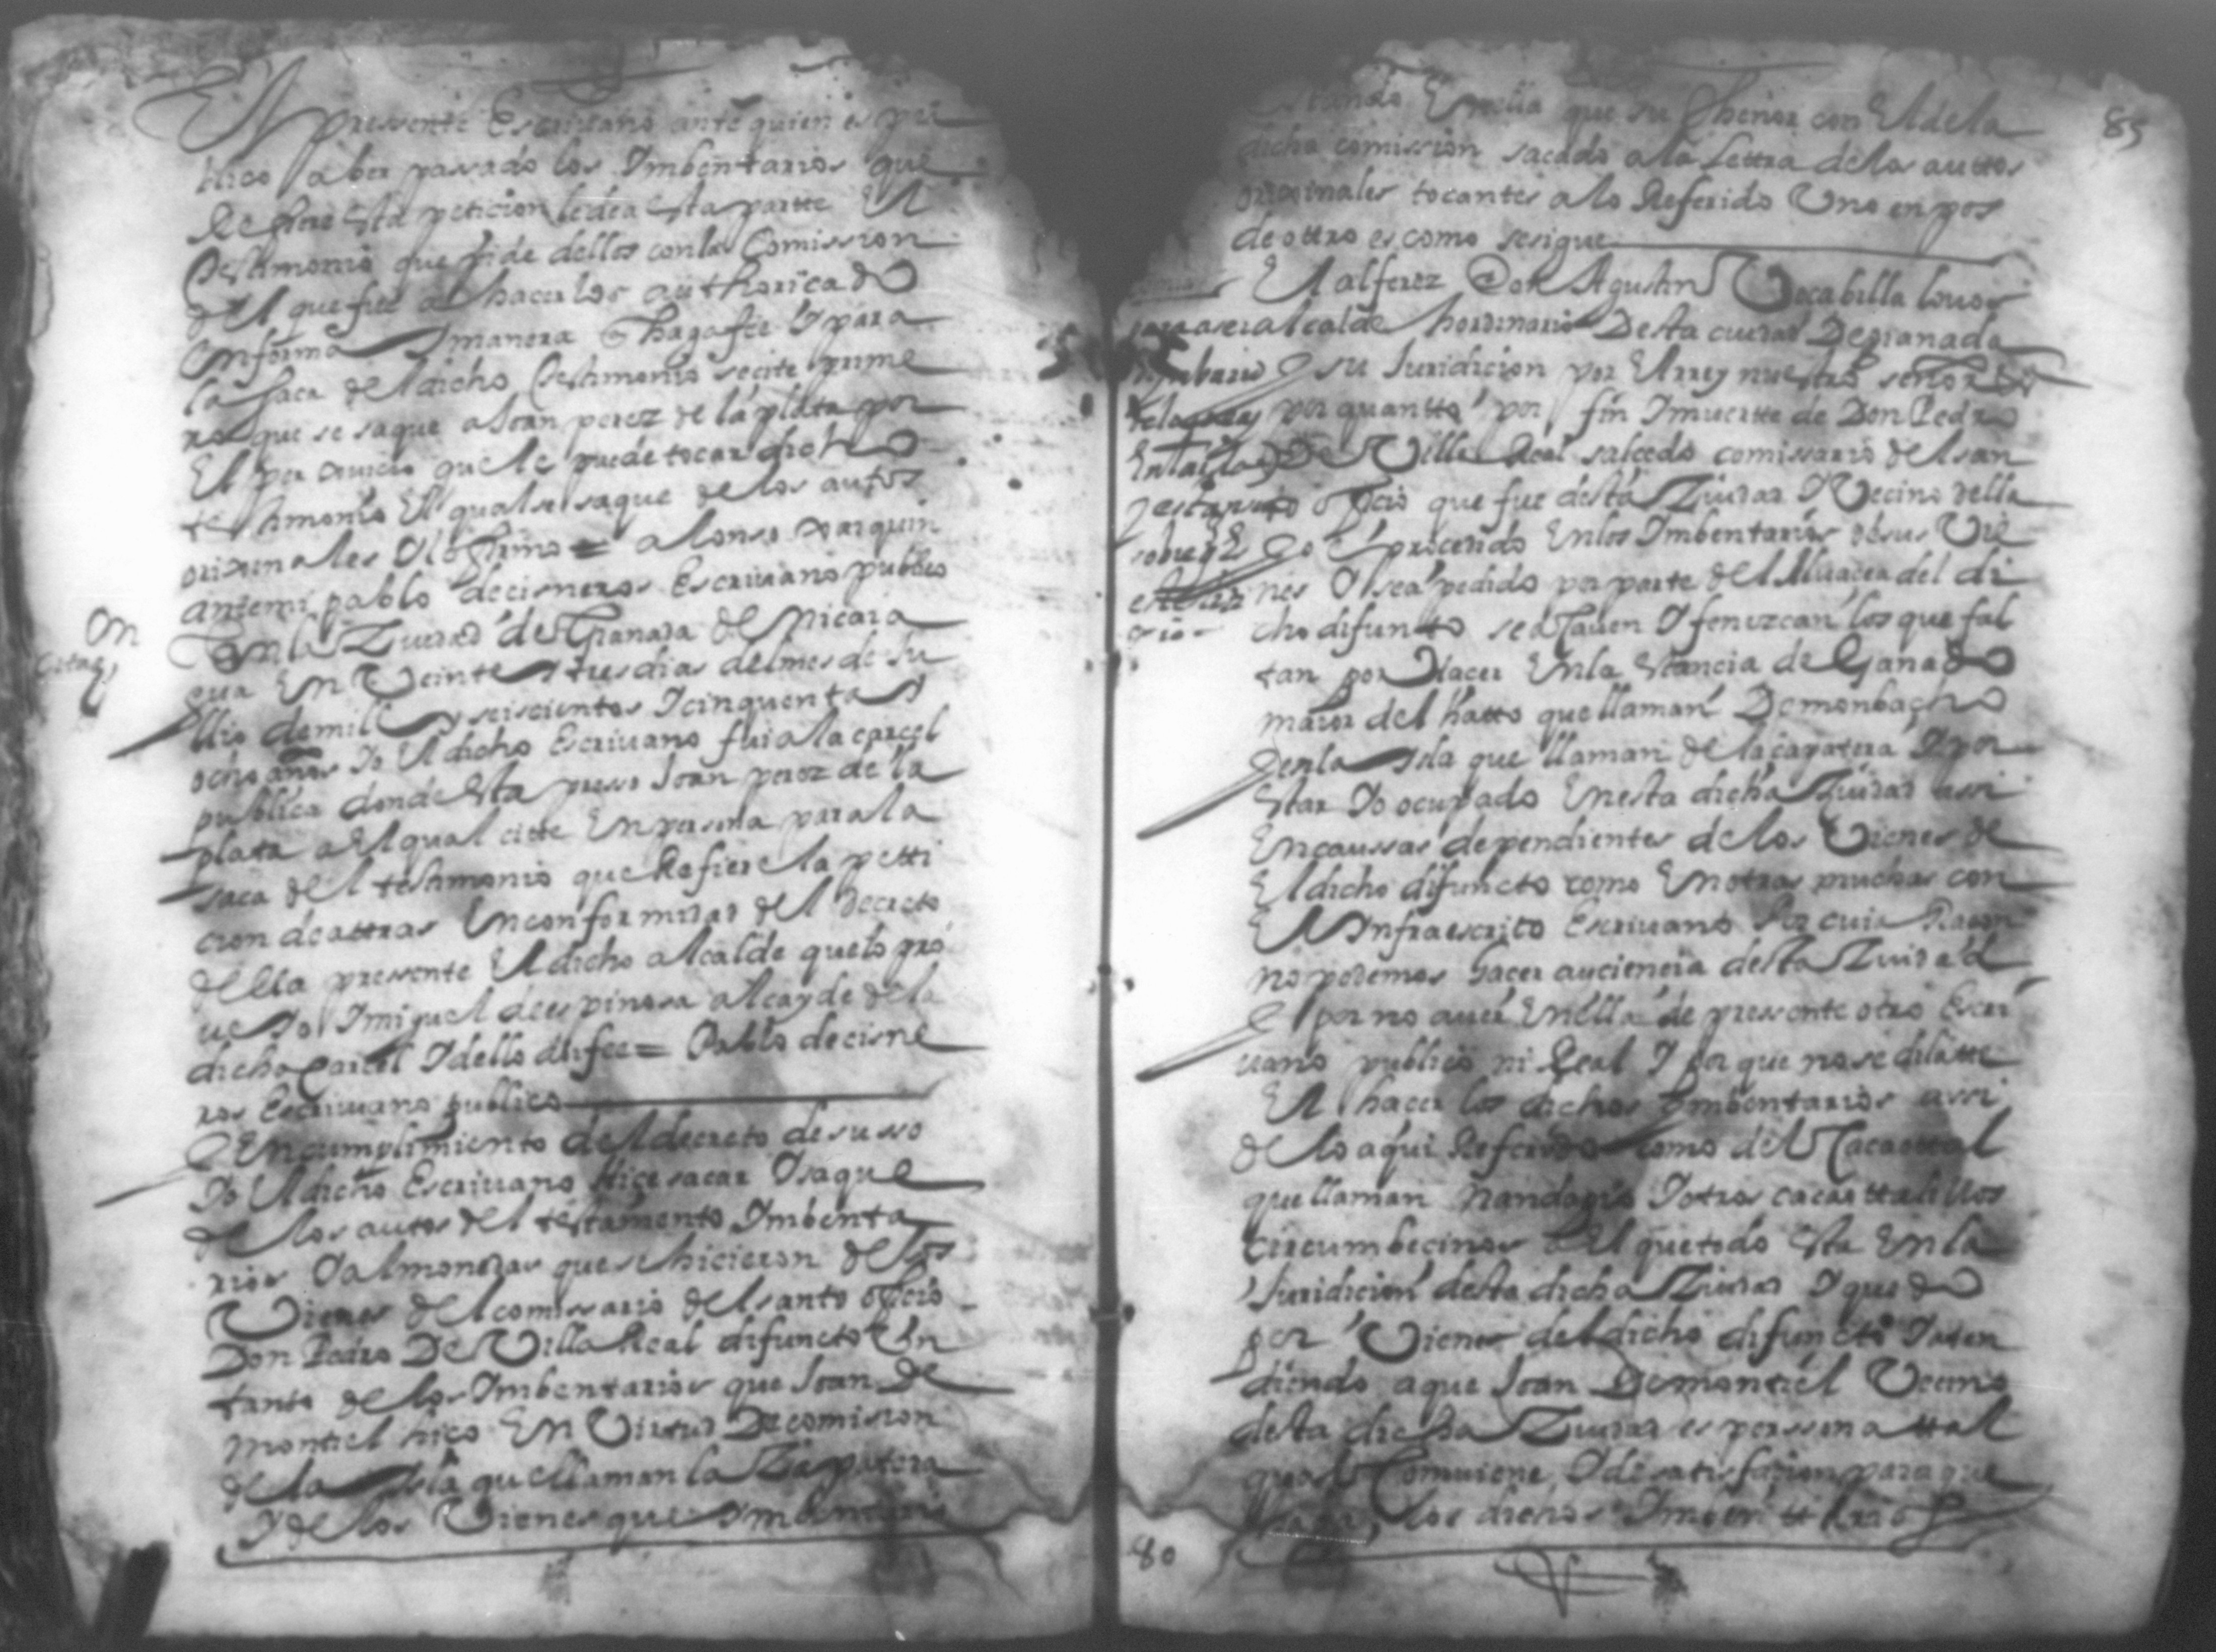 El pressente Escriuano ante quien es pu
blico aber passado los Imbentarios que
Refiere esta peticion le dea esta partte El
testimonio que pide dellos con la Comission
del que fue a hacerlos authoricado
En forma I manera que haga fee I para
la saca del dicho testimonio se cite prime
ro que se saque a Joan perez de la plata por
El per Juicio que le puede tocar dicho
testimonio El qual se saque de los autos
originales I lo firmo = alonso Joarquin
antemi pablo de cisneros Escriuano publico
En la Ziudad de Granada de nicara
gua En Veinte I tres dias del mes de Ju
llio de mill y seiscientos I cinquenta I
ocho años Io El dicho Escriuano fui a la carcel
publica donde Esta presso Joan perez de la
plata a El qual citte En persona para la
saca del testimonio que Refiere la petti
cion de attras En conformidad del decreto
della presente El dicho alcalde que lo pro
ueIo I miguel de espinosa alcayde de la
dicha Carcel I dello doi fee = Pablo de cisne
ros Escriuano publico
En cumplimiento del decreto de susso
Io El dicho Escriuano hice sacar I saque
de los autos del testamento Imbenta
rios I almonedas que se hicieron de los
Vienes del comissario del santo oficio
Don Pedro De Villa Real difuncto Un
tanto de los Imbentarios que Joan De
montiel hiço En Virtud De comision
de la Isla que llaman la Zapatera
I de los Vienes que Imbentario
En
Citaz
85
que su thenor con El de la
dicha comission sacado a la Lettra de los auttos
originales tocantes a lo Referido Uno en pos
de ottro es como se sigue
El alferez Don Agustin Vocabilla
alcalde hordinario Desta ciudad De granada
su Juridicion por El rey nuestro señor
por quantto por fin I muertte de Don Pedro
De Villa Real salcedo comissario del san
to oficio que fue desta Ziudad I Vecino della
procedido En los Imbentarios de sus Vie
nes I se a pedido por parte del Aluacea del di
cho difunto se actauen I fenezcan los que fal
tan por Hacer En la Estancia de Ganado
maior del hatto que llaman De monbacho
En la Isla que llaman de la çapatera I por
Estar Io ocupado En esta dicha Ziudad assi
En caussas dependientes de los Vienes de
El dicho difuncto como En otras muchas con
El Infraescrito Escriuano Por cuia Raçon
no podemos hacer auciencia desta Ziudad
por no auer En ella de pressente otro Escri
uano publico ni Real I por que no se dilatte
El hacer los dichos Imbentarios assi
de lo aqui Referido como del Cacaottal
que llaman Nandayo I otros cacaottalillos
circumbecinos a El que todo Esta En la
Juridicion desta dicha Ziudad I quedo
por Vienes del dicho difuncto I aten
diendo a que Joan De montiel Vecino
desta dicha Ziudad es perssona ttal
qual Comuiene I de satisfaçion para que
haga los dichos Imbenttarios
80